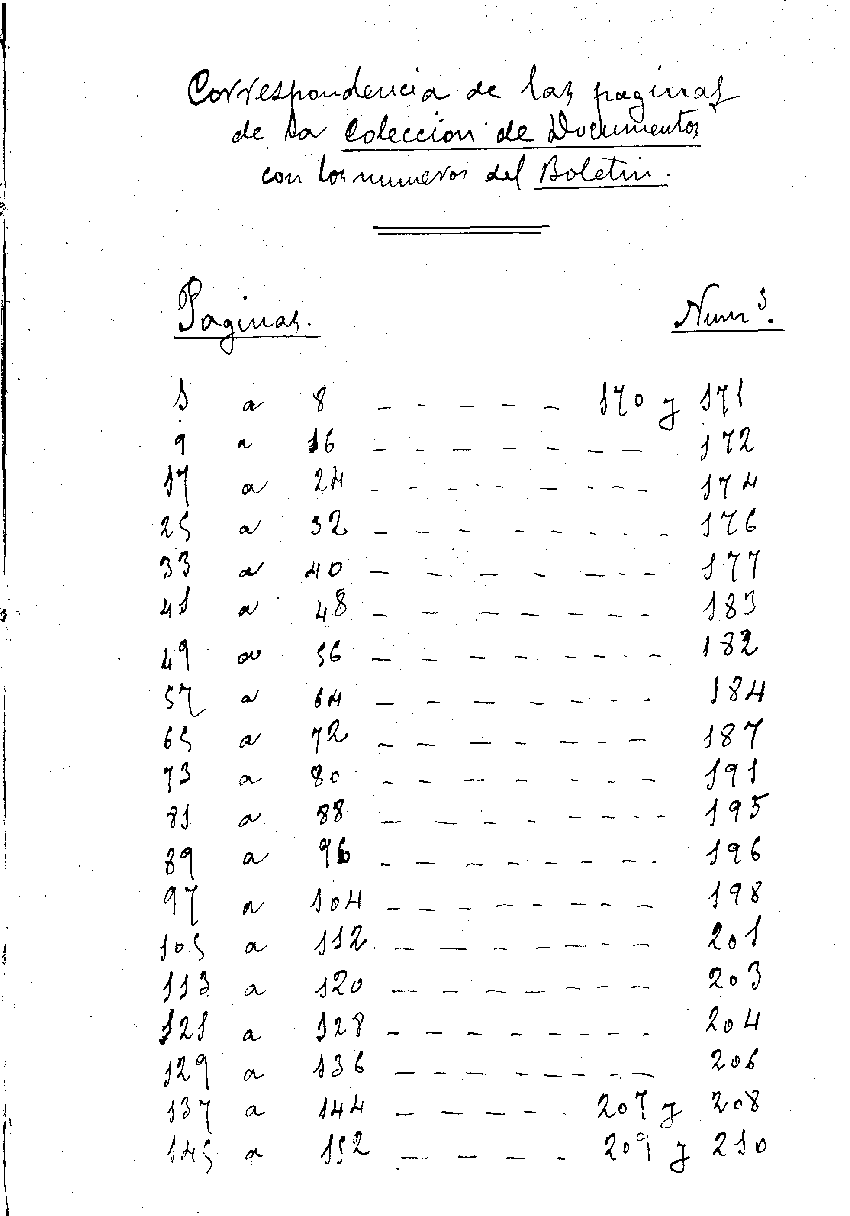 Correspondencia de las paginas
de la Coleccion de Documentos
con los numeros del Boletin.
Paginas. Num.s
1 a 8 - - - - - 170 y 171
9 a 16 - - - - - - - 172
17 a 24 - - - - - - - 174
25 a 32 - - - - - - - - 176
33 a 40 - - - - - - - 177
41 a 48 - - - - - - - - 183
49 a 56 - - - - - - - - 182
57 a 64 - - - - - - - - 184
65 a 72 - - - - - - - 187
73 a 80 - - - - - - - - 191
81 a 88 - - - - - - - - 195
89 a 96 - - - - - - - - 196
97 a 104 - - - - - - - - 198
105 a 112 - - - - - - - - 201
113 a 120 - - - - - - - 203
121 a 128 - - - - - - - - 204
129 a 136 - - - - - - - - 206
137 a 144 - - - - - 207 y 208
145 a 152 - - - - - 209 y 210